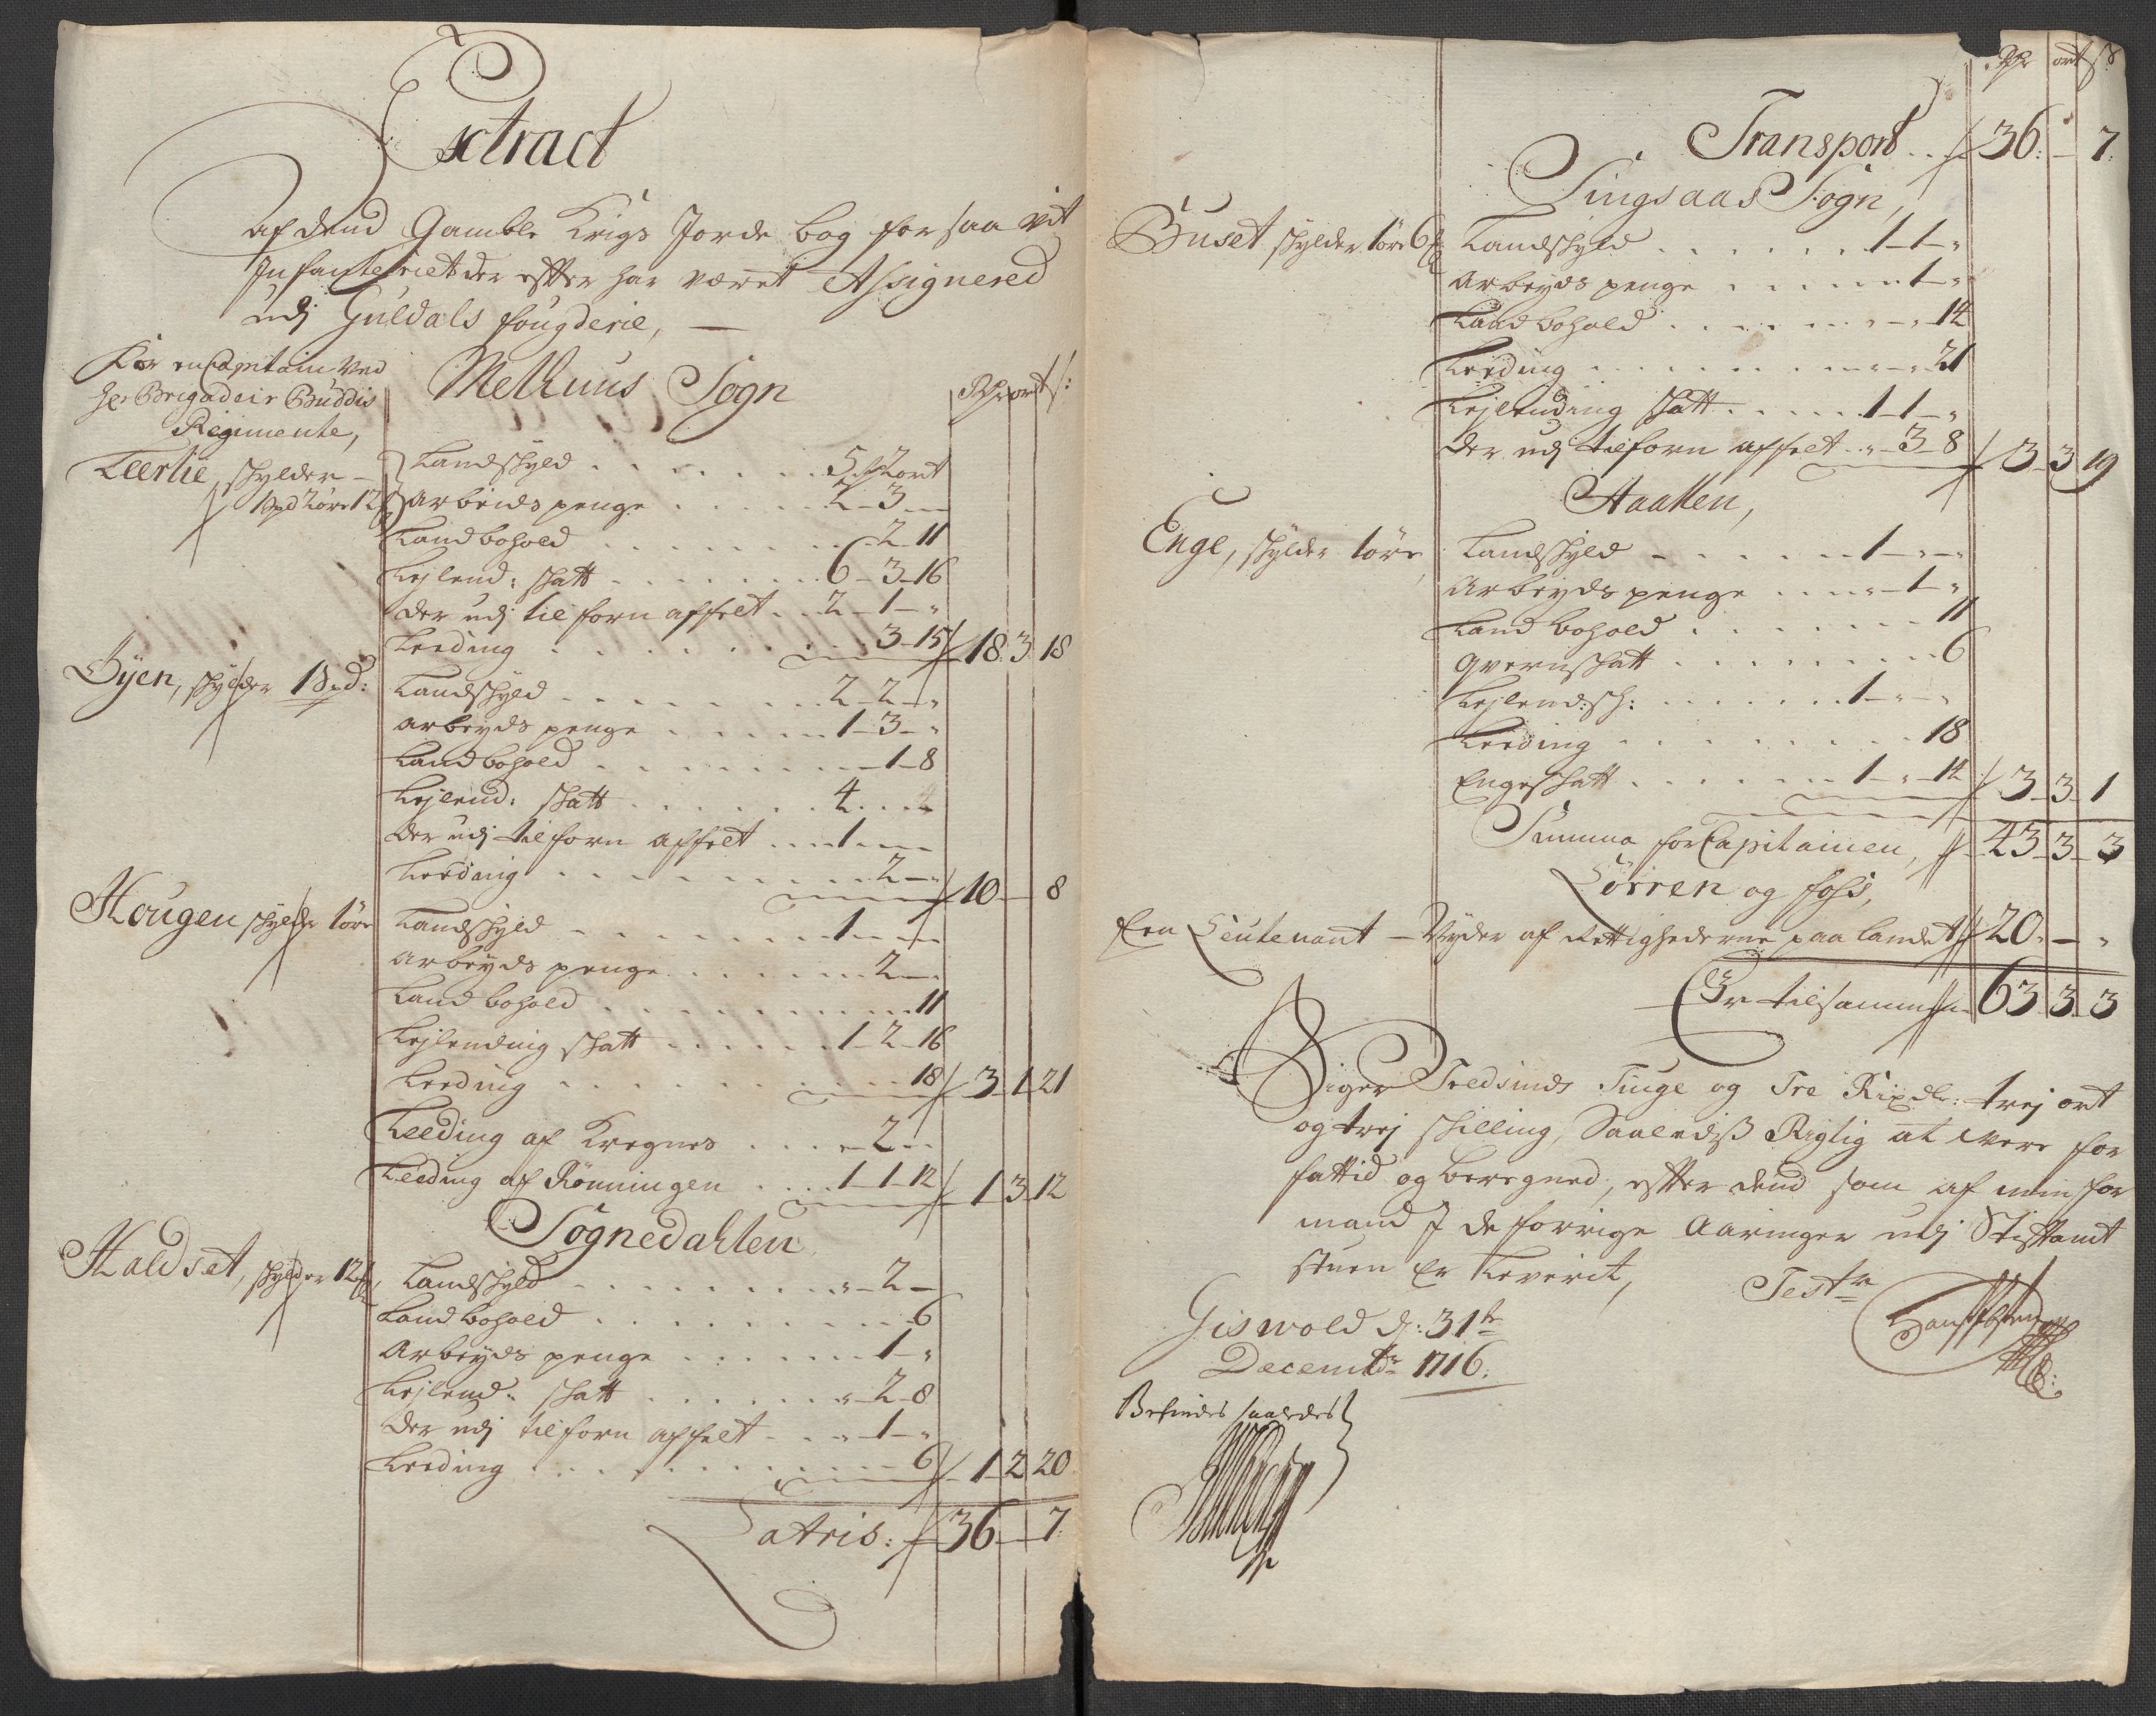 Extract
af dend Gamble Krigs Jorde bog for saa vit
Infanteriet der efter har været Assignered
udj Guldals fougderie, —
For en Capitain ved
Hr Brigadeir Buddis
Regimente,
Melhuus Sogn
Rdr ort s:
Leerlie, skylder —
1 spd 2 øre 12
Landskyld . . . . . . 5 2 ort
Arbeids penge . . . . . 2 - 3 —
Landbohold . . . . . . . 2 - 11
Lejlend: skatt . . . . . 6 - 3 - 16
der udj tilforn affelt . . 2 - 1 - "
Leeding . . . . . . . 3 - 15 18 3 18
Øyen, skylder 1 Spd:
Landskyld . . . . . . 2 - 2 - "
Arbeyds penge . . . . . 1 - 3 - "
Landbohold . . . . . . . 1 - 8
Lejlend: skatt . . . . . . 4 . . 4
der udj tilforn affelt . . . 1 - —
Leeding . . . . . . . . 2 - " 10 — 8
Hougen skylder 1 øre
Landskyld . . . . . . . 1 - —
Arbeyds penge . . . . . . 2 - "
Land bohold . . . . . . . . 11
Lejlending skatt . . . . . 1 - 2 - 16
Leeding . . . . . . . . . 18 3 1 21
Leeding af Kregnes . . . . 2 - —
Leeding af Rønningen . . . . 1 - 1 - 12 1 3 12
Sognedahlen
Haldset, skylder 12
Landskyld . . . . . . . " - 2 —
Landbohold . . . . . . . . 6
Arbeyds penge . . . . . . 1 - "
Lejlend: skatt . . . . . . " - 2 - 8
der udj tilforn affelt . . . " - 1 - "
Leeding . . . . . . . . . 6 1 2 20
Latris: 36 — 7
Rdr ort s
Transport . . 36: — 7:
Singsaas Sogn,
Buset skylder 1 øre 6
Landskyld . . . . . . . 1 - 1 - "
Arbeyds penge . . . . . . 1 - "
Landbohold . . . . . . . " - " 14
Leeding . . . . . . . . " - " 21
Lejlending skatt . . . . . 1 - 1 - "
der udj tilforn affelt . . " - 3 - 8 3 3 19
Aaalen,
Enge, skylder 1 øre
Landskyld . . . . . . . 1 - " - "
Arbeyds penge . . . . " - 1 - "
Land bohold . . . . . . . . 11
Qvernskatt . . . . . . . . 6
Lejlend: sk: . . . . . . . 1 - " - "
Leeding . . . . . . . . . 18
Engeskatt . . . . . . . 1 - " - 14 3 3 1
Summa for Capitainen, 43 3 3
Løvren og foss,
Een Leutenant — Nyder af Rettighederne paa landet 20: — "
Er tilsammen 63 3 3
Siger Tredsinds Tiuge og Tre Rixdlr: trej ort
og trej skilling, Saaledis Rigtig at være for
fattid og beregned, efter dend som af min for
mand J de forrige Aaringer udj Stiftamt
stuen Er Leverit,
Gisvold d: 31te
Decembr 1716:
Teste
Befindes saaledes